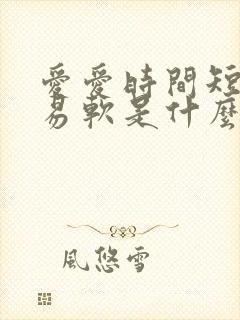 愛愛時間短
易軟是什麼
風悠雪